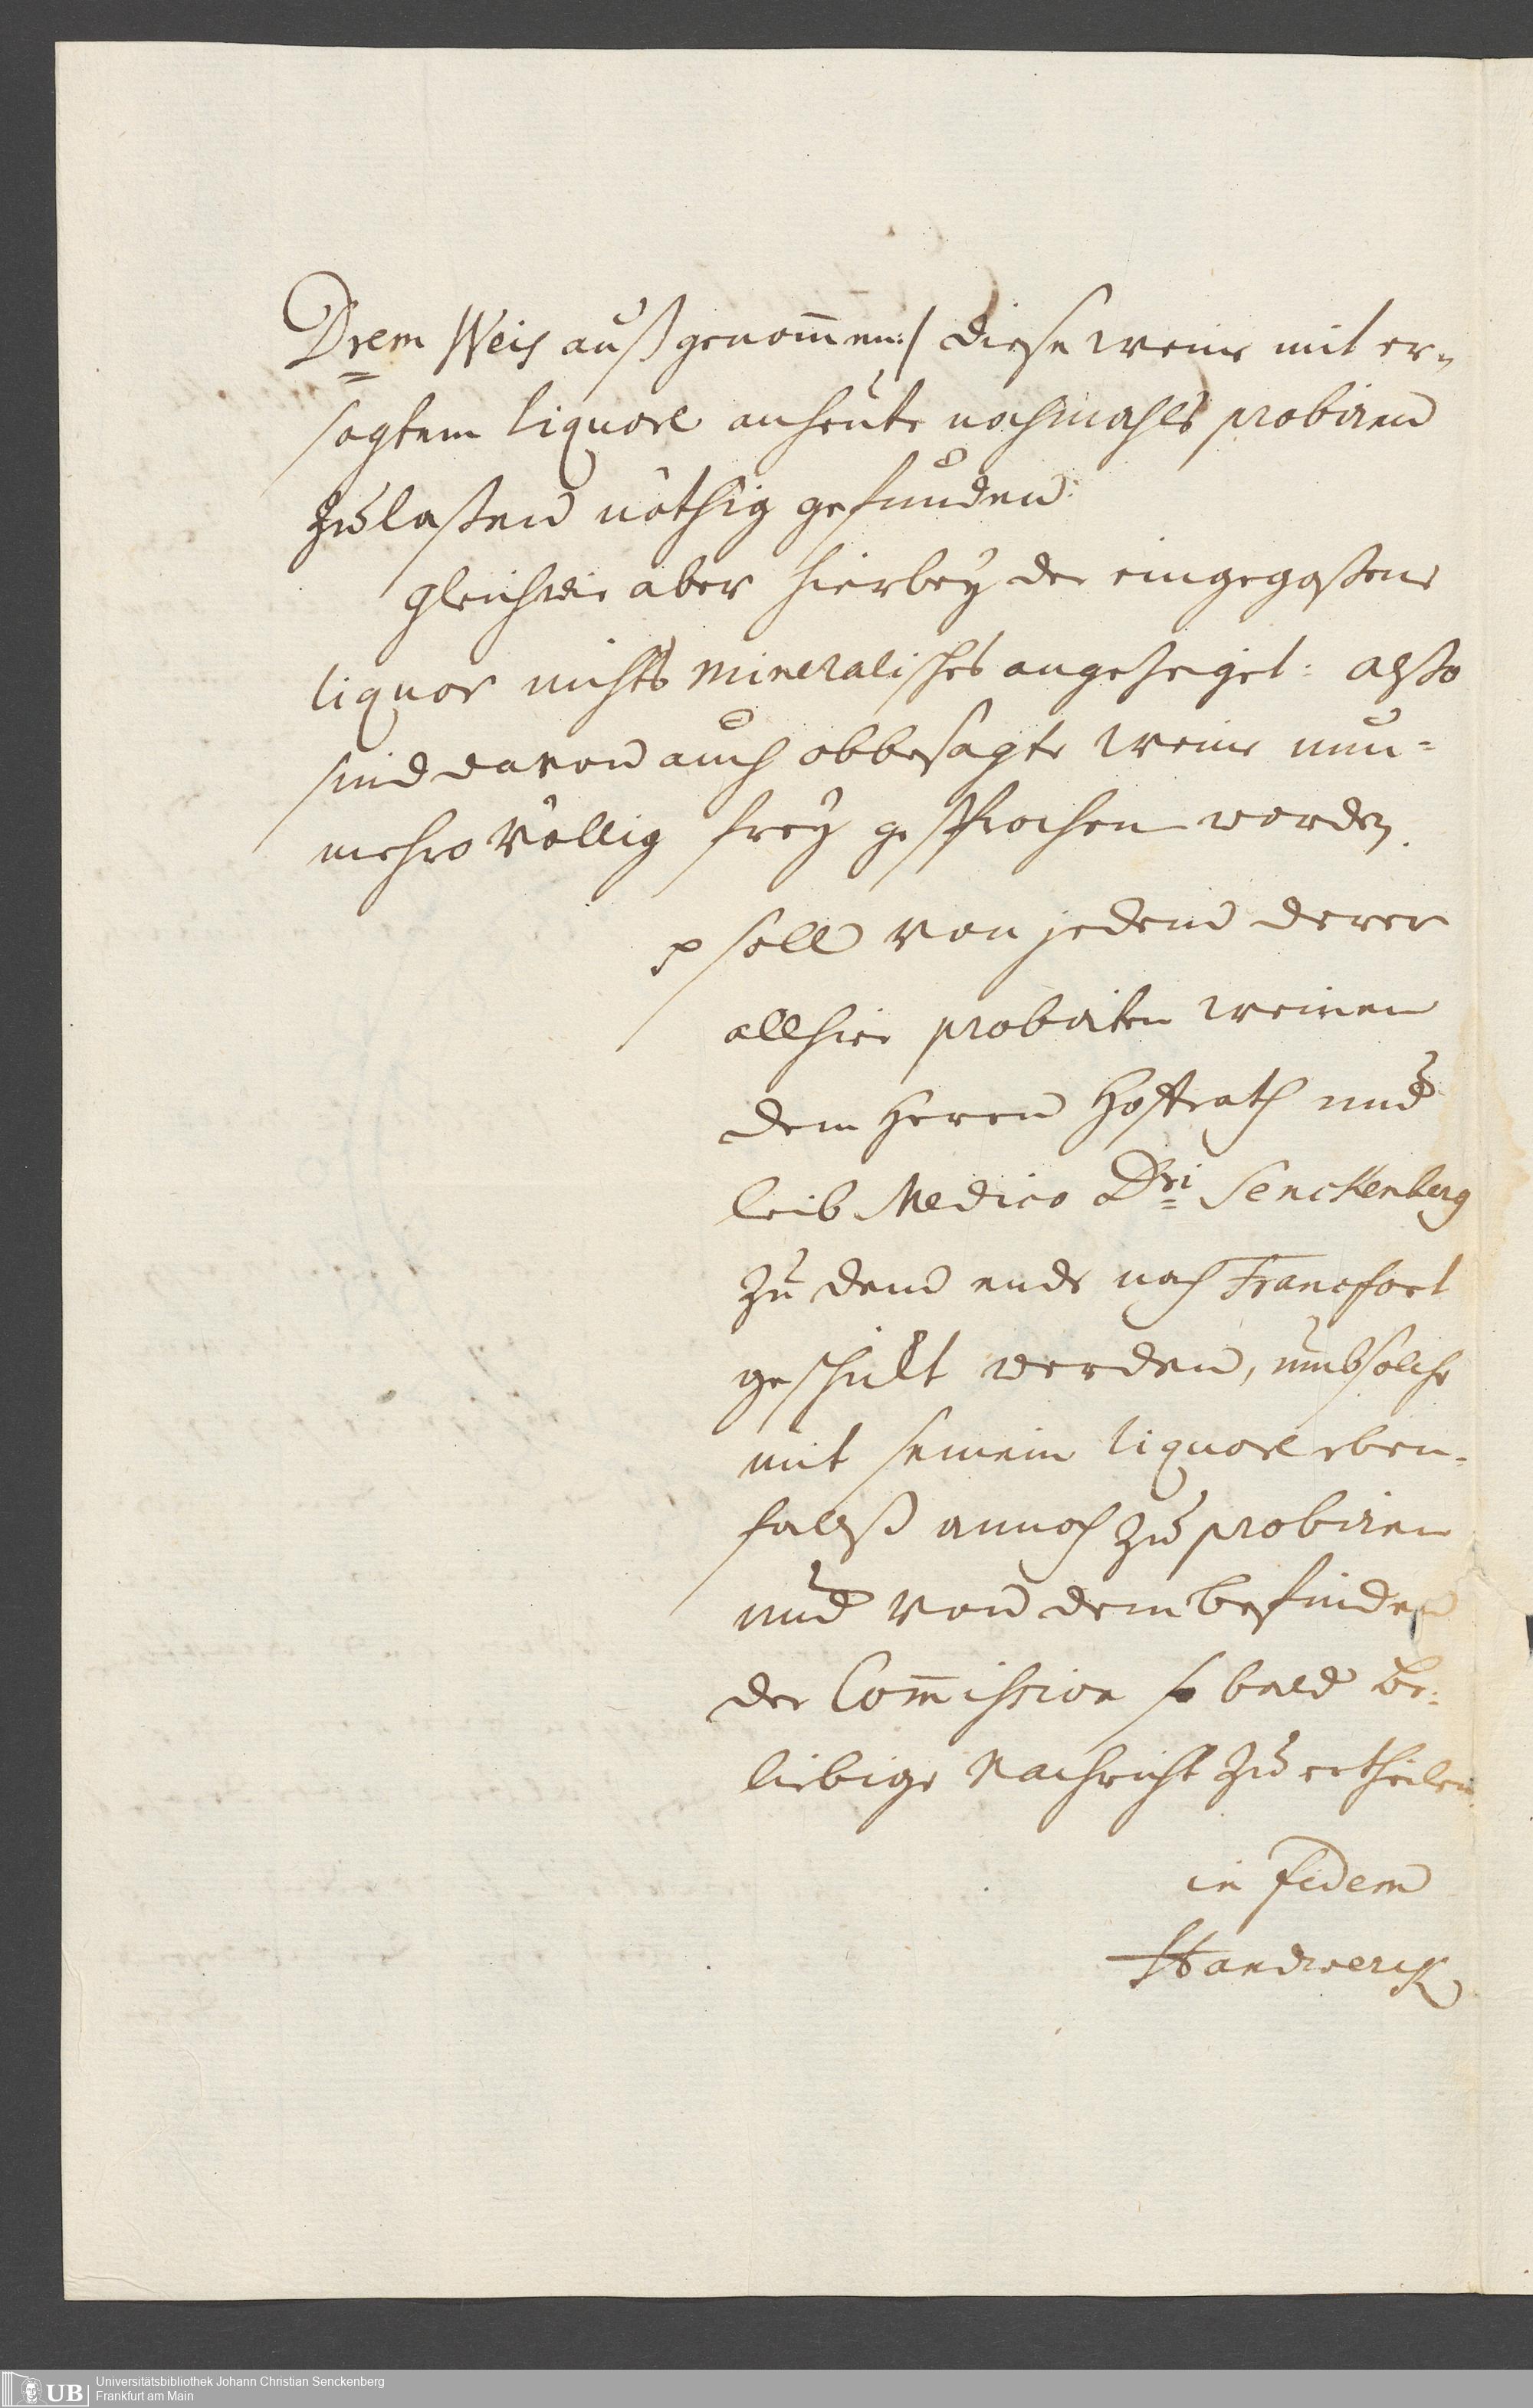 Drem Weis außgenom̄en:/ diese weine mit er-
sagtem liquore anheute nochmahls probiren
zu laßen nöthig gefunden
gleichwie aber hierbey der eingegoßene
liquor nichts mineralisches angezeiget: alßo
sind davon auch obbesagte weine nun=
mehro völlig frey gesprochen worden.
soll von jedem derer
allhier probirten weinen
dem Herrn Hoffrath und
leib Medico Dri Senckenberg
zu dem ende nach Francfort
geschickt werden, umb solche
mit seinem liquore eben-
falß annoch zu probiren
und von dem befinden
der Com̄ission so bald be-
liebige Nachricht zu ertheilen
in fidem
Handwerck
UB
Universitätsbibliothek Johann Christian Senckenberg
Frankfurt am Main